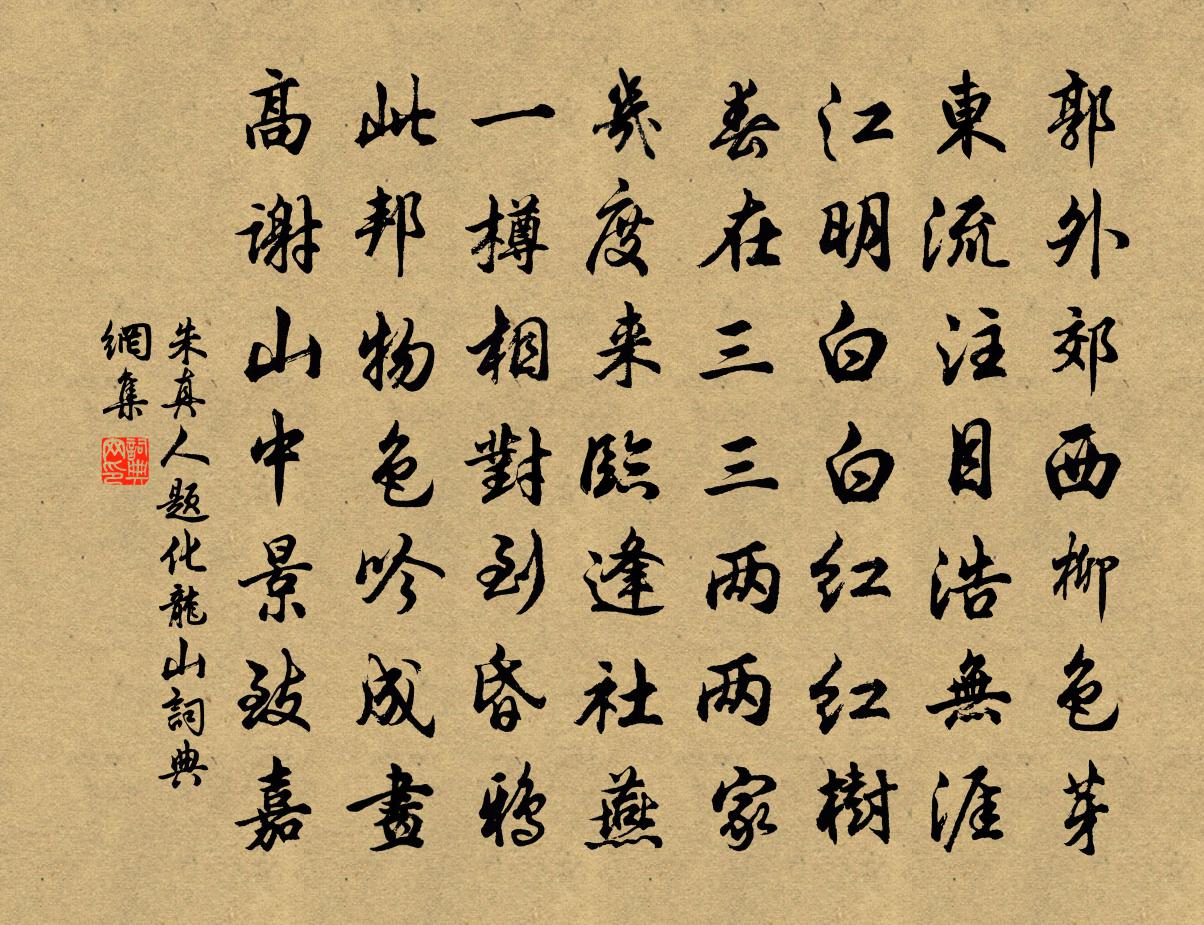 郭外郊西柳色芽
東流注目浩無涯
江明白白红红樹
春在三三两两家
幾度来臨逢社燕
一樽相對到昏鸦
此邦物色吟成畫
高谢山中景致嘉
朱真人题化龍山詞典
網集
詞典
网印